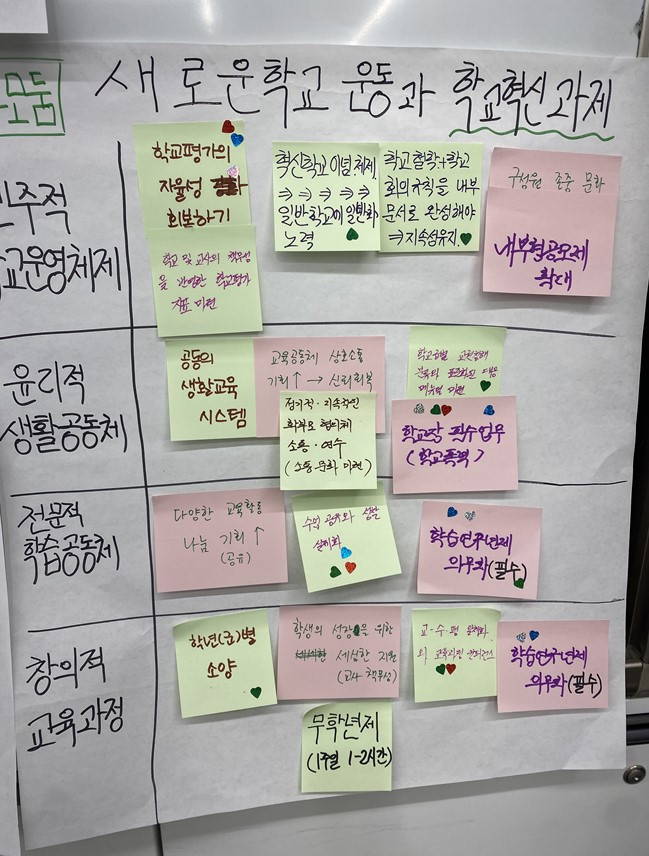 모둠
새로운학교 운동과 학교혁신과제
민주적
학교운영체제
학교평가의
자율성
회복하기
학교 및 교사의 책무성
을 반영한 학교평가
지표 마련
혁신학교 이념 체제
⇒⇒⇒⇒⇒
일반학교에 일반화
노력
학교철학+학교
회의규칙을 내부
문서로 완성해야
⇒지속성유지.
구성원 존중 문화
내부형공모제
확대
윤리적
생활공동체
공동의
생활교육
시스템
교육공동체 상호소통
기회↑ → 신뢰회복
정기적·지속적인
학부모 협의체
소통·연수
(소통 문화 마련)
매뉴얼 마련
학교장 필수업무
(학교폭력)
전문적
학습공동체
다양한 교육활동
나눔 기회 ↑
(공유)
수업 공유와 성찰
실제화
학습연구년제
의무화(필수)
창의적
교육과정
학년(군)별
소양
학생의 성장을 위한
세심한 지원
(교사 책무성)
교·수·평 일체화
학습연구년제
의무화(필수)
무학년제
(1주일 1-2시간)